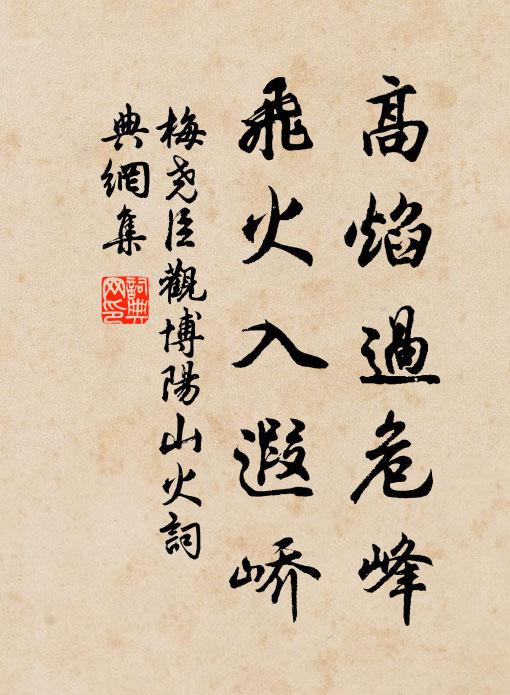 高焰過危峰
飛火入遐嶠
梅堯臣觀博陽山火詞
典網集
詞典網印